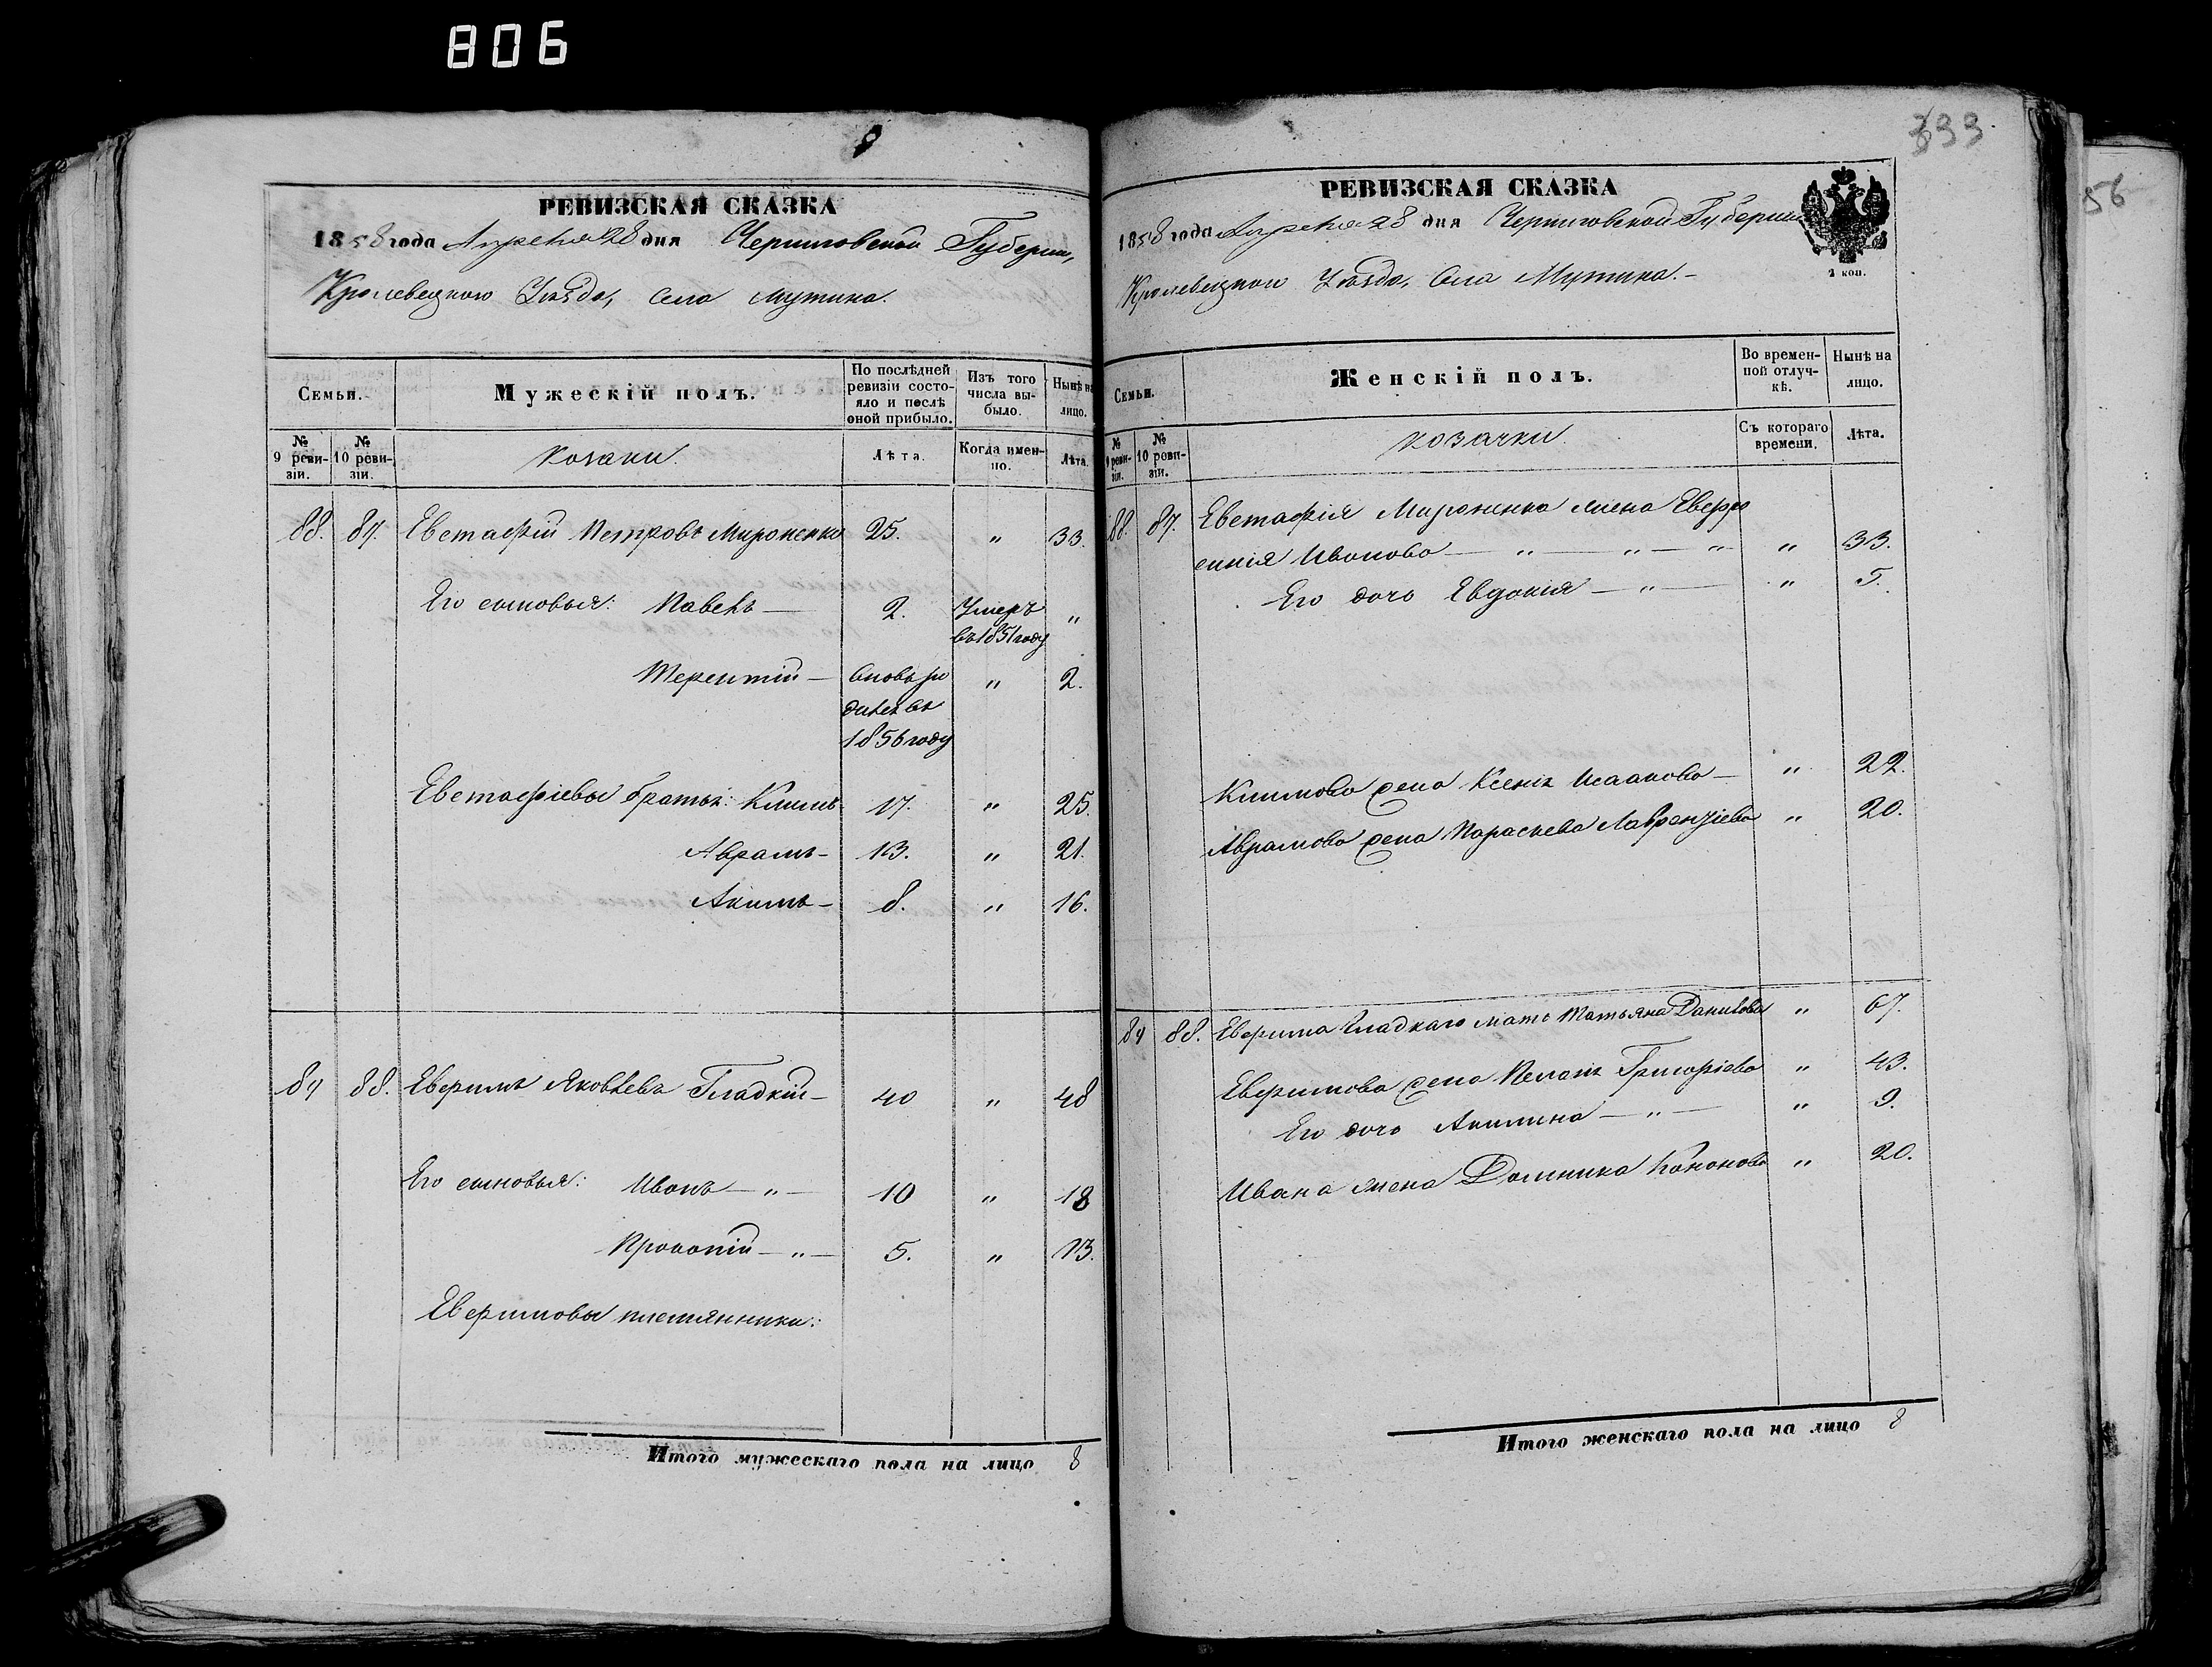 806
РЕВИЗСКАЯ СКАЗКА
1858 года Апреля 28 дня Черниговской Губернии,
Кролевецкого Уезда, села Мутина.
Семьи.
Мужескій полъ.
По послѣдней ревизіи состояло и послѣ оной прибыло.
Изъ того числа выбыло.
Нынѣ на лицо.
№ 9 ревизіи.
№ 10 ревизіи.
Козаки.
Лѣта.
Когда именно.
Лѣта.
88. 87. Евстафій Петровъ Мироненко 25. " 33.
Его сыновья: Павелъ — 2. Умеръ въ 1851 году "
Терентій — вновь родился въ 1856 году " 2.
Евстафіевы братья: Климъ 17. " 25.
Аврамъ — 13. " 21.
Акимъ — 8. " 16.
89 88. Евфимъ Яковлевъ Гладкій — 40 " 48
Его сыновья: Иванъ — " — 10 " 18
Прокопій — " — 5. " 13.
Евфимовы племянники:
Итого мужескаго пола на лицо 8
333
56
РЕВИЗСКАЯ СКАЗКА
1858 года Апреля 28 дня Черниговской Губернии
2 коп.
Кролевецкого Уезда, села Мутина. —
Семьи.
Женскій полъ.
Во временной отлучкѣ.
Нынѣ на лицо.
№ 9 ревизіи.
№ 10 ревизіи.
козачки.
Съ котораго времени.
Лѣта.
88. 87. Евстафія Мироненка жена Евфро
синія Иванова — " — " — " — " 33.
Его дочь Евдокія — " — " 5.
Климова жена Ксенія Исаакова — " 22.
Аврамова жена Параскева Лаврентіева " 20.
89 88. Евфима Гладкаго мать Татьяна Данилова " 67.
Евфимова жена Пелагія Григоріева " 43.
Его дочь Акилина — " — " 9.
Ивана жена Домника Кононова " 20.
Итого женскаго пола на лицо 8